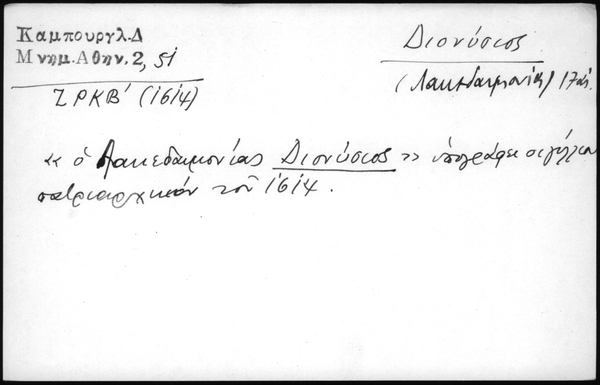 Καμπουργλ.Δ
Μνημ.Αθην. 2, 51
ΖΡΚΒ' (1614)
Διονύσιος
(Λακεδαιμονίας) 17 αἰ.
« ὁ Λακεδαιμονίας Διονύσιος » ὑπογράφει σιγίλλιον
πατριαρχικόν τοῦ 1614.